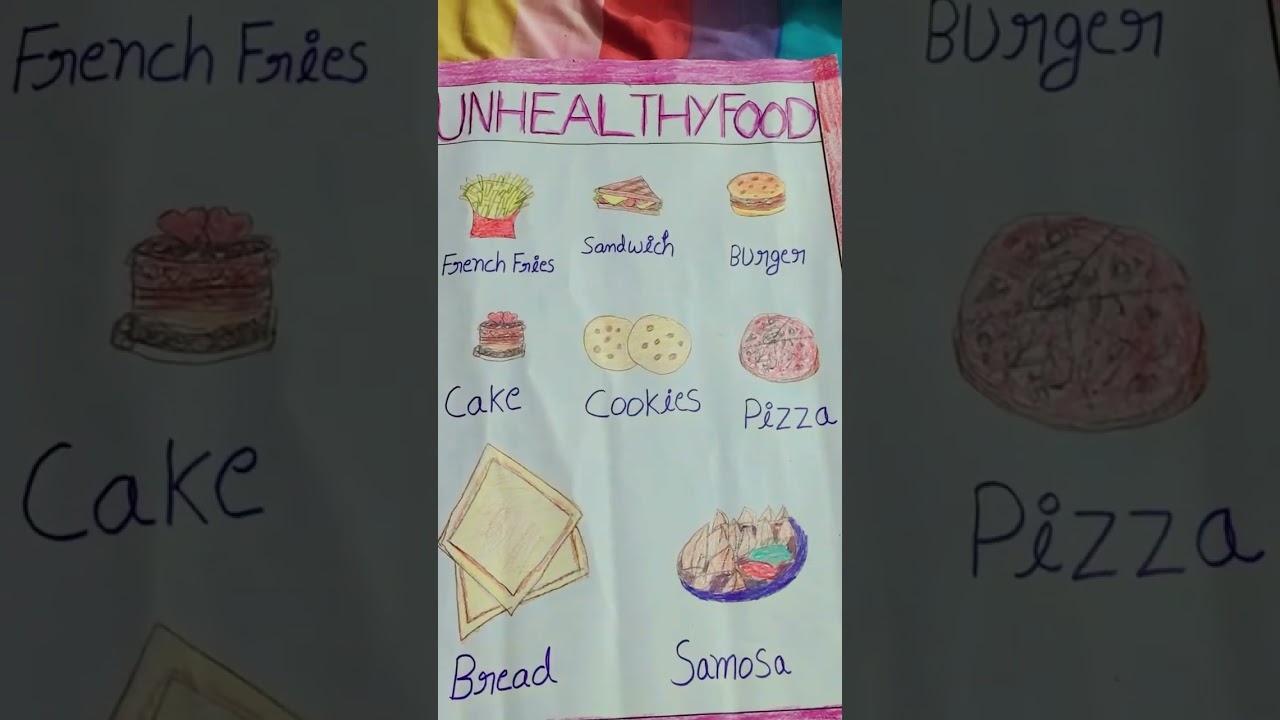 French Fries
Burger
UNHEALTHY FOOD
French Fries
Sandwich
Burger
Cake
Cookies
Pizza
Cake
Pizza
Bread
Samosa